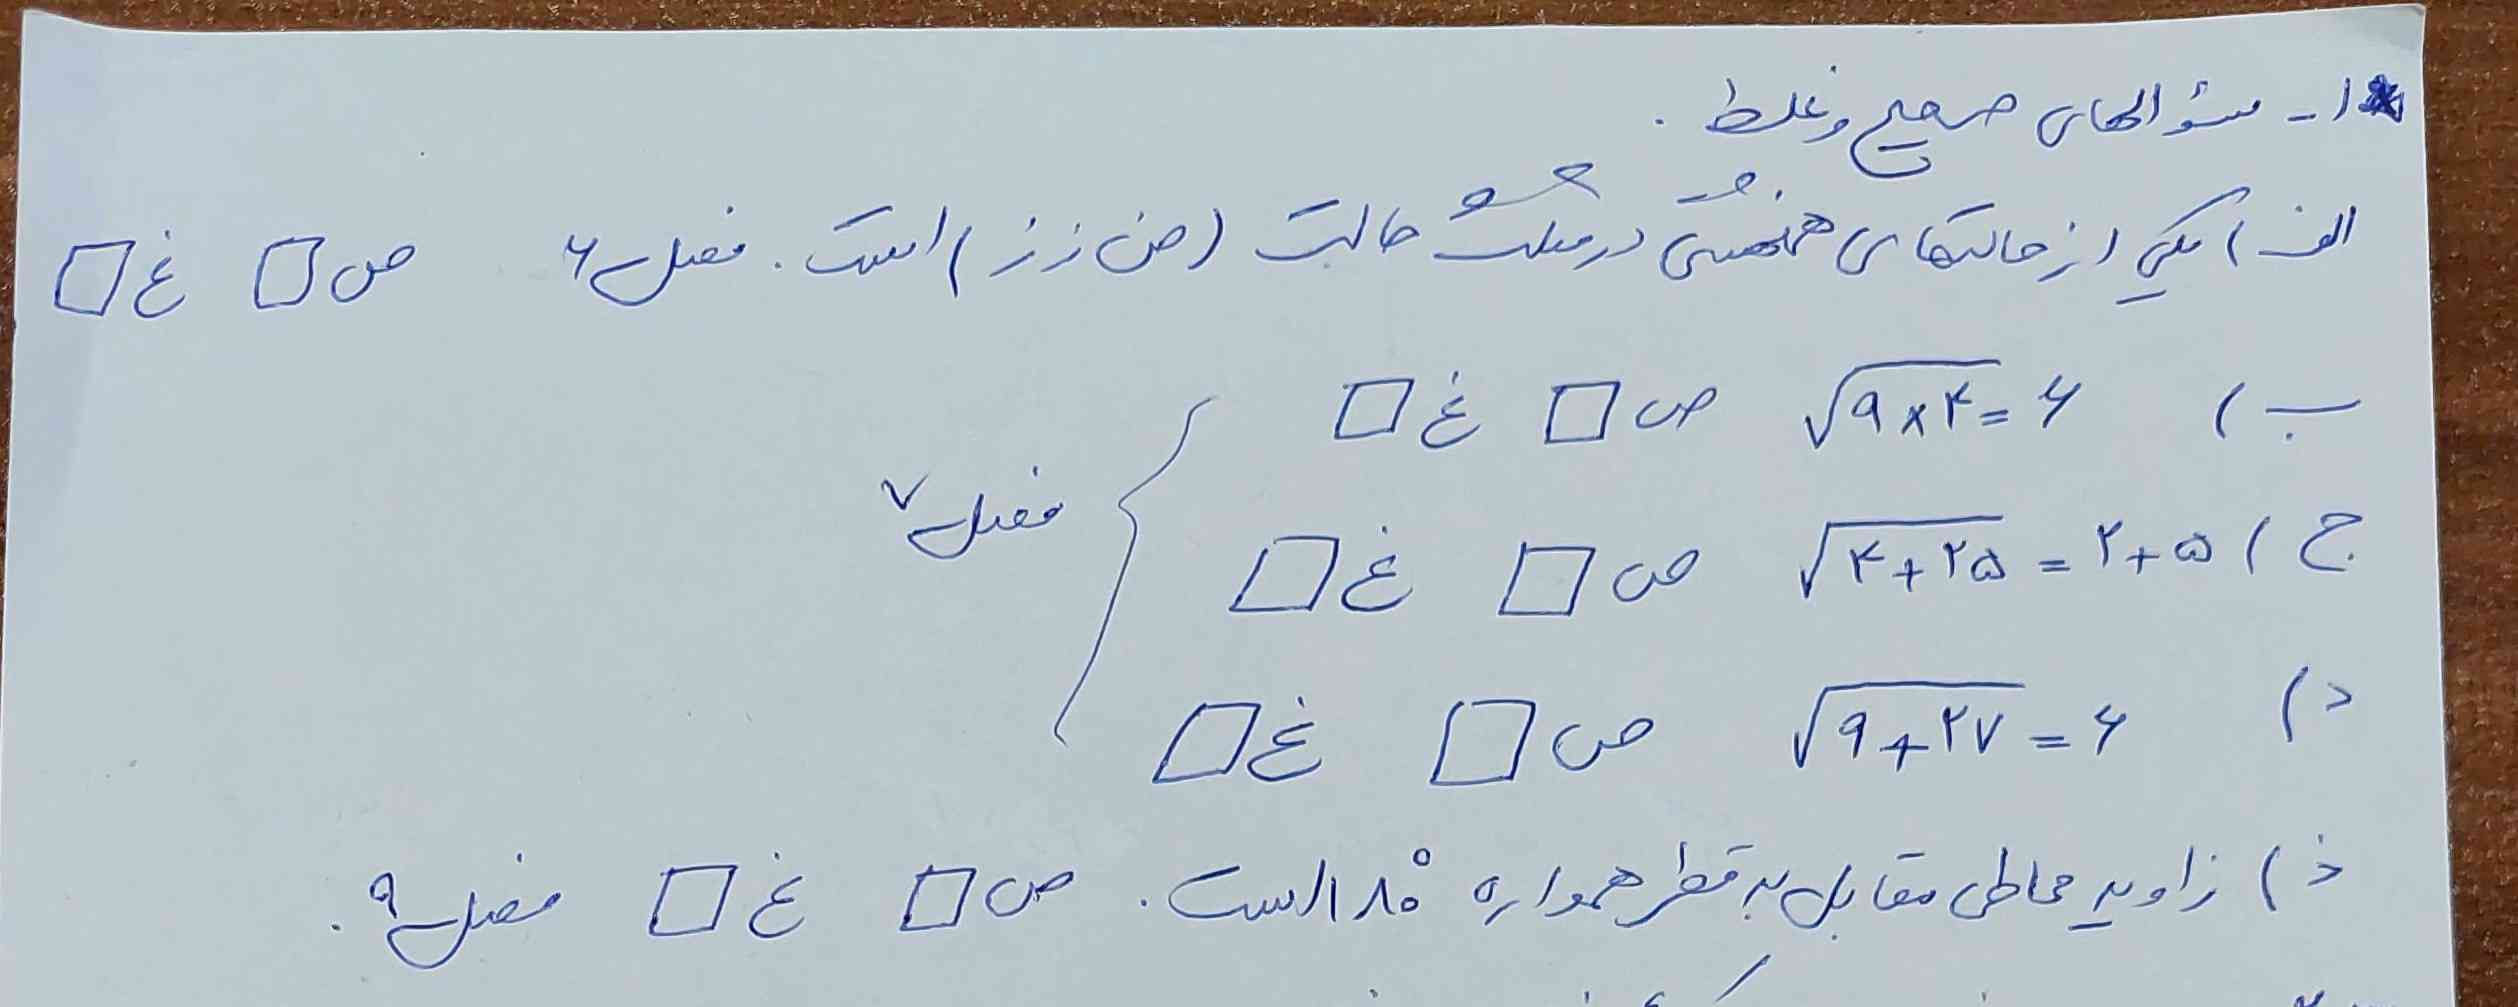 ۱- سئوالهای صحیح و غلط .
الف ) یکی از حالتهای همنهشتی در مثلث حالت ( ض ز ز ) است . فصل ۶ ص □ غ □
ب ) √۹×۴ = ۶ ص □ غ □
ج ) √۴+۲۵ = ۲+۵ ص □ غ □
فصل ۷
د ) √۹+۲۷ = ۶ ص □ غ □
ذ ) زاویه محاطی مقابل به قطر همواره ۱۸۰° است . ص □ غ □ فصل ۹ .